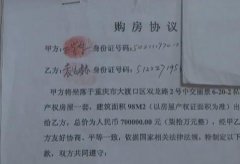 购房协议
甲方： 身份证号码：
乙方： 身份证号码：512227195
甲方将坐落于重庆市大渡口区双龙路2号中交丽景6-20-2
产权房屋一套，建筑面积98M2（以房屋产权证面积为准）出
给乙方，总价为人民币700000.00元（柒拾万元整）。经甲
方友好协商、平等一致，依据国家相关法律法规，特制定以下
款，双方共同遵守：